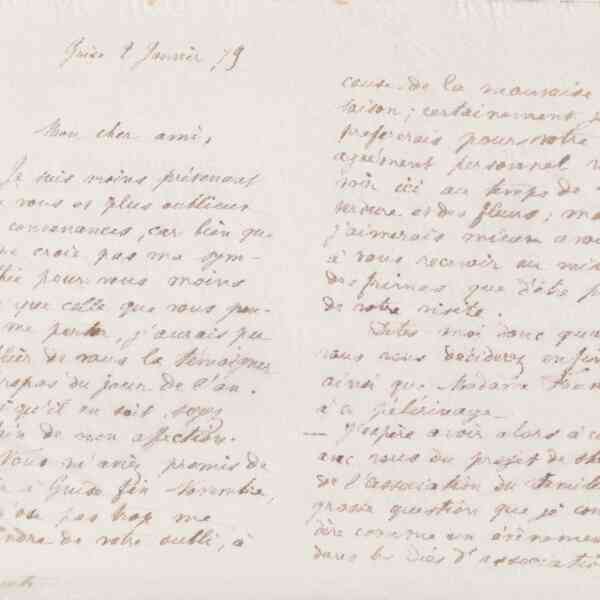 Guise 2 Janvier 79
Mon cher ami,
Je suis moins prévenant
vous et plus oublieux
convenances, car bien que
ne croie pas ma sym-
thie pour vous moins
que celle que vous pou-
me porter, j'aurais pu
blier de vous la témoigner
ropos du jour de l'an.
i qu'il en soit, soyez
de mon affection.
Vous m'aviez promis de
à Guise fin Novembre,
ou pas trop me
indre de votre oubli, à
cause de la mauvaise
saison ; certainement je
préférerais pour votre
agrément personnel
voir ici au temps de
verdure et des fleurs ; ma
j'aimerais mieux
à vous recevoir au mi
des frimas que d'être p
de votre visite.
Dites moi donc qua
vous vous déciderez enfin
ainsi que Madame
à ce pélérinage
— J'espère avoir alors à c
avec vous du projet de st
de l'association du Famil
grosse question que je con
dère comme un évènemen
dans les idées d'association